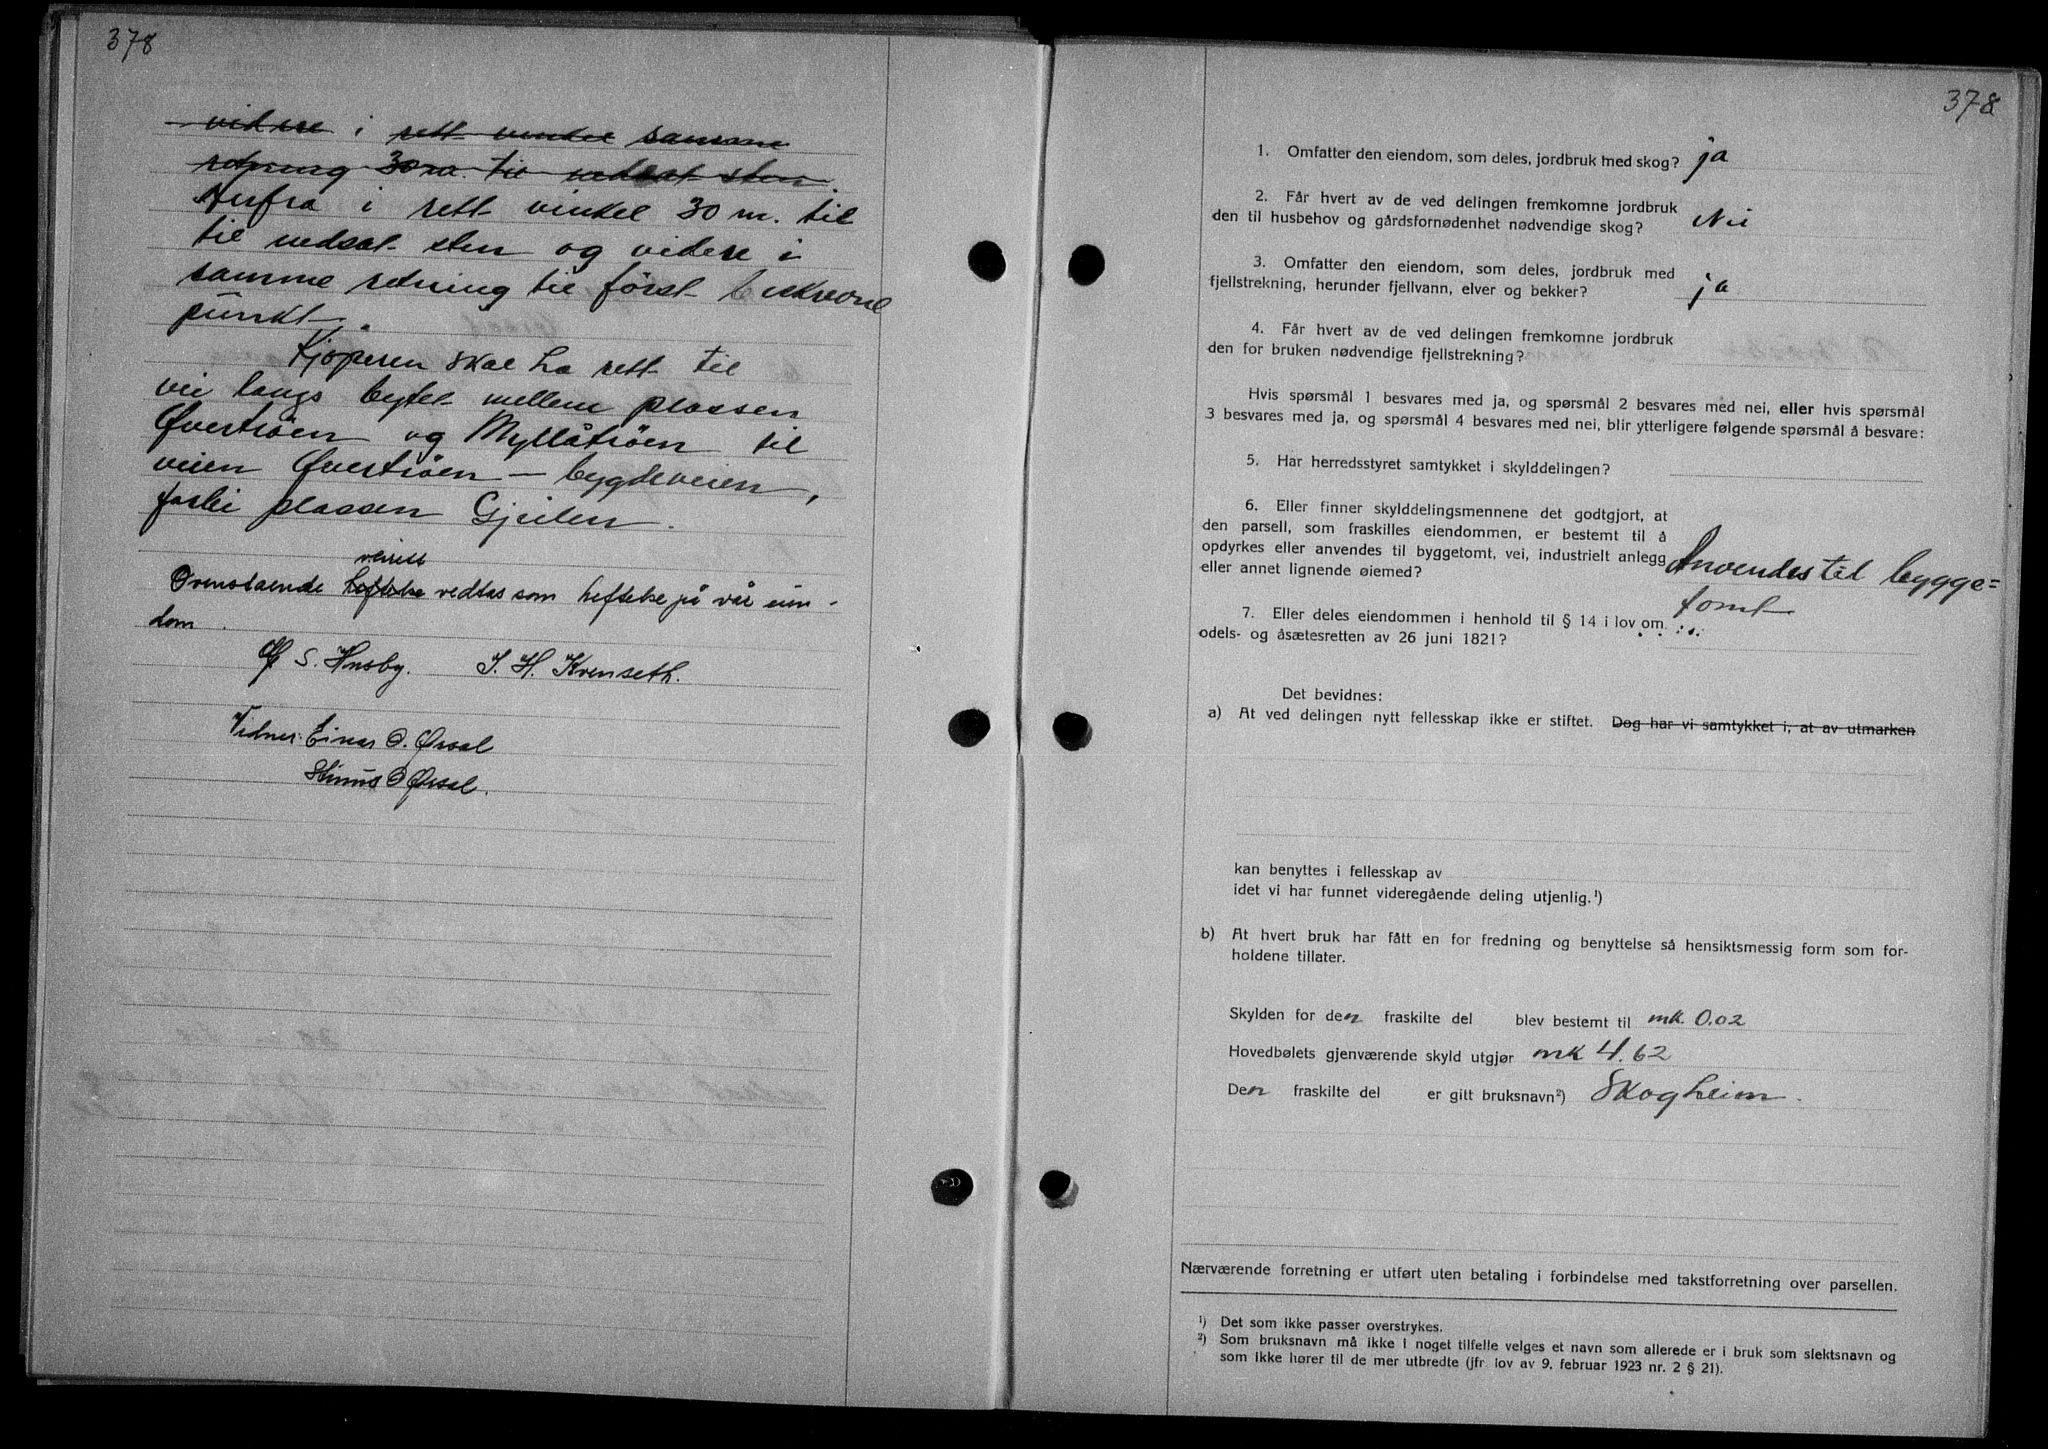 378
vidre i rett vinkel samme
retning 30 m. til nedsat sten.
Herfra i rett vinkel 30 m. til
til nedsat sten og videre i
samme retning til først beskrevne
punkt.
Kjøperen skal ha rett til
vei langs bytet mellem plassen
Øvertrøen og Myllåtrøen til
veien Øvertrøen – bygdeveien,
forbi plassen Gjeilen.
veirett
Ovenstaende heftelse vedtas som heftelse på vår eien-
dom.
S. Husby. J. H. Kvenseth.
Vidner: Einar O. Øssal
O Øssal.
378
1. Omfatter den eiendom, som deles, jordbruk med skog? ja
2. Får hvert av de ved delingen fremkomne jordbruk
den til husbehov og gårdsfornødenhet nødvendige skog? Nei
3. Omfatter den eiendom, som deles, jordbruk med
fjellstrekning, herunder fjellvann, elver og bekker? ja
4. Får hvert av de ved delingen fremkomne jordbruk
den for bruken nødvendige fjellstrekning?
Hvis spørsmål 1 besvares med ja, og spørsmål 2 besvares med nei, eller hvis spørsmål
3 besvares med ja, og spørsmål 4 besvares med nei, blir ytterligere følgende spørsmål å besvare:
5. Har herredsstyret samtykket i skylddelingen?
6. Eller finner skylddelingsmennene det godtgjort, at
den parsell, som fraskilles eiendommen, er bestemt til å
opdyrkes eller anvendes til byggetomt, vei, industrielt anlegg
eller annet lignende øiemed? Anvendes til bygge=
tomt
7. Eller deles eiendommen i henhold til § 14 i lov om
odels- og åsætesretten av 26 juni 1821?
Det bevidnes:
a) At ved delingen nytt fellesskap ikke er stiftet. Dog har vi samtykket i, at av utmarken
kan benyttes i fellesskap av
idet vi har funnet videregående deling utjenlig.¹)
b) At hvert bruk har fått en for fredning og benyttelse så hensiktsmessig form som for-
holdene tillater.
Skylden for den fraskilte del blev bestemt til mk. 0.02
Hovedbølets gjenværende skyld utgjør mk 4.62
Den fraskilte del er gitt bruksnavn²) Skogheim.
Nærværende forretning er utført uten betaling i forbindelse med takstforretning over parsellen.
¹) Det som ikke passer overstrykes.
²) Som bruksnavn må ikke i noget tilfelle velges et navn som allerede er i bruk som slektsnavn og
som ikke hører til de mer utbredte (jfr. lov av 9. februar 1923 nr. 2 § 21).